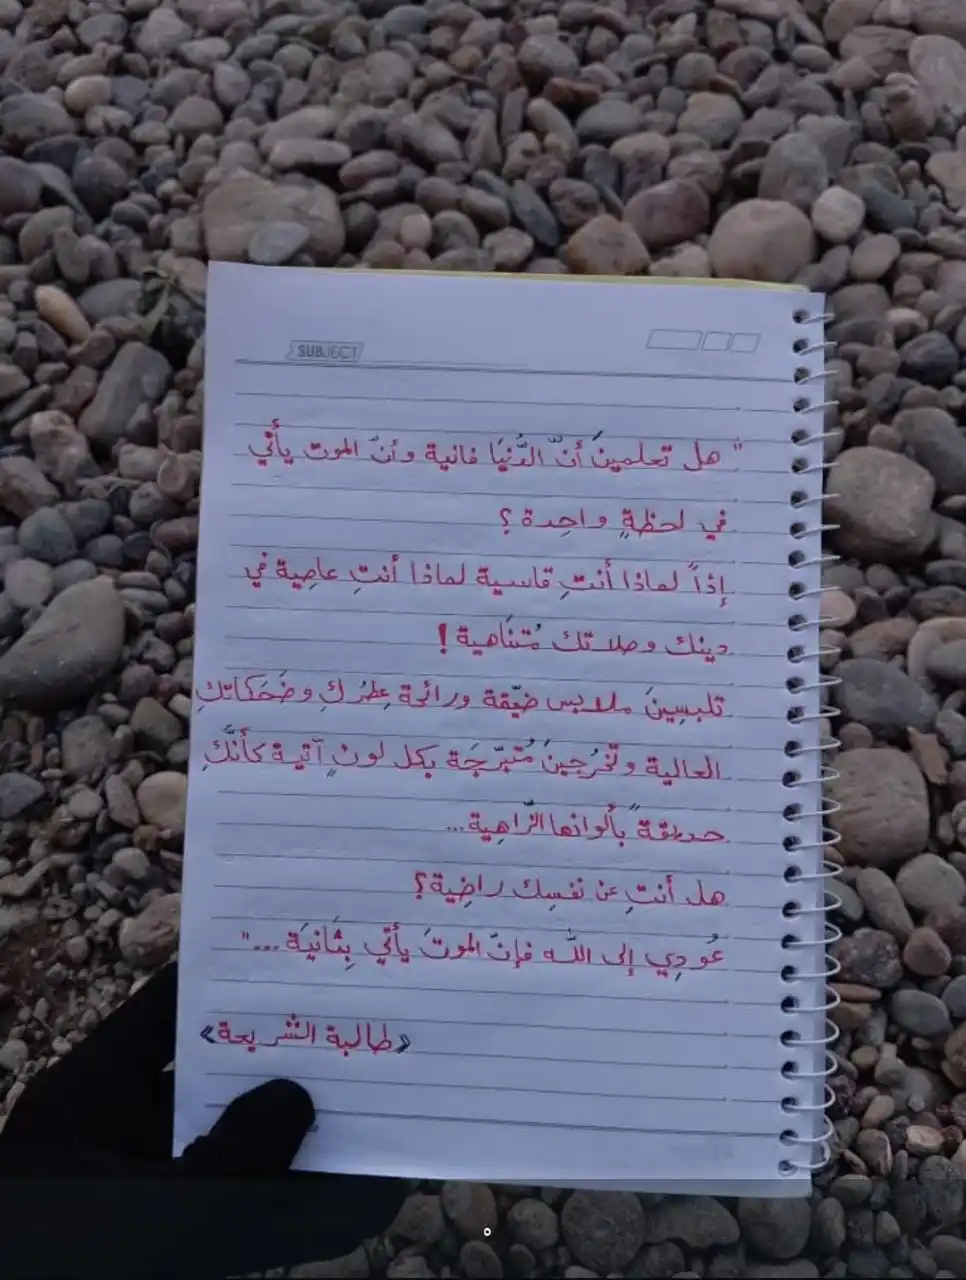 SUBJECT
" هل تعلمينَ أنّ الدُّنيَا فانية وأنّ الموت يأتي
في لحظةٍ واحِدة ؟
إذاً لماذا أنتِ قاسية لماذا أنتِ عاصِية في
دينك وصلاتك مُتنَاهية !
تلبسِينَ ملابس ضيّقة ورائحة عِطرُكِ وضَحَكاتكِ
العالية وتخرُجينَ مُتبرّجَة بكل لونٍ آتية كأنّكِ
حديقةً بألوانها الزّاهِية...
هل أنتِ عن نفسِك راضِية؟
عُودِي إلى اللّه فإنّ الموتَ يأتي بِثَانيَة ..."
«طالبة الشريعة»